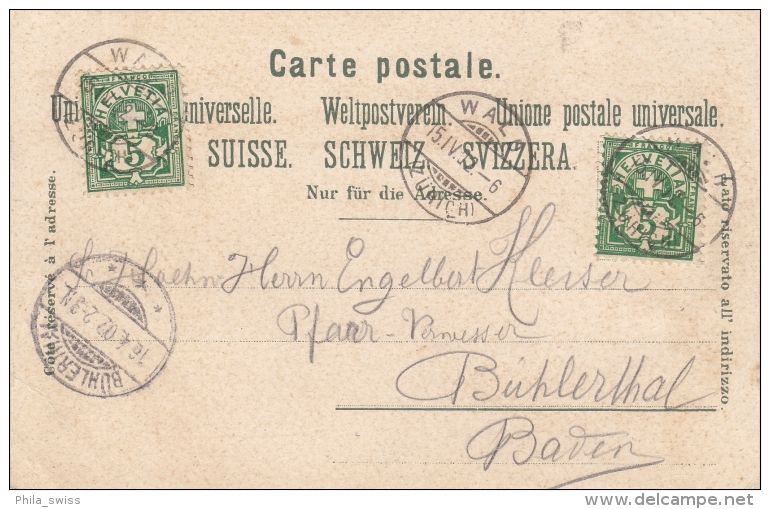 Carte postale.
Union universelle. Weltpostverein. Unione postale universale.
SUISSE. SCHWEIZ SVIZZERA.
Nur für die Adresse.
Côté réservé à l'adresse.
Lato riservato all' indirizzo.
WAL
FRANCO
HELVETIA
5
WAL
15.IV.02.-6
(ZÜRICH)
FRANCO
HELVETIA
5
16.4.02.2-3N.
BÜHLERTHAL
Herrn Engelbert Kleiser
Pfarr-Verweser
Bühlerthal
Baden
Phila_swiss
delcampe.net